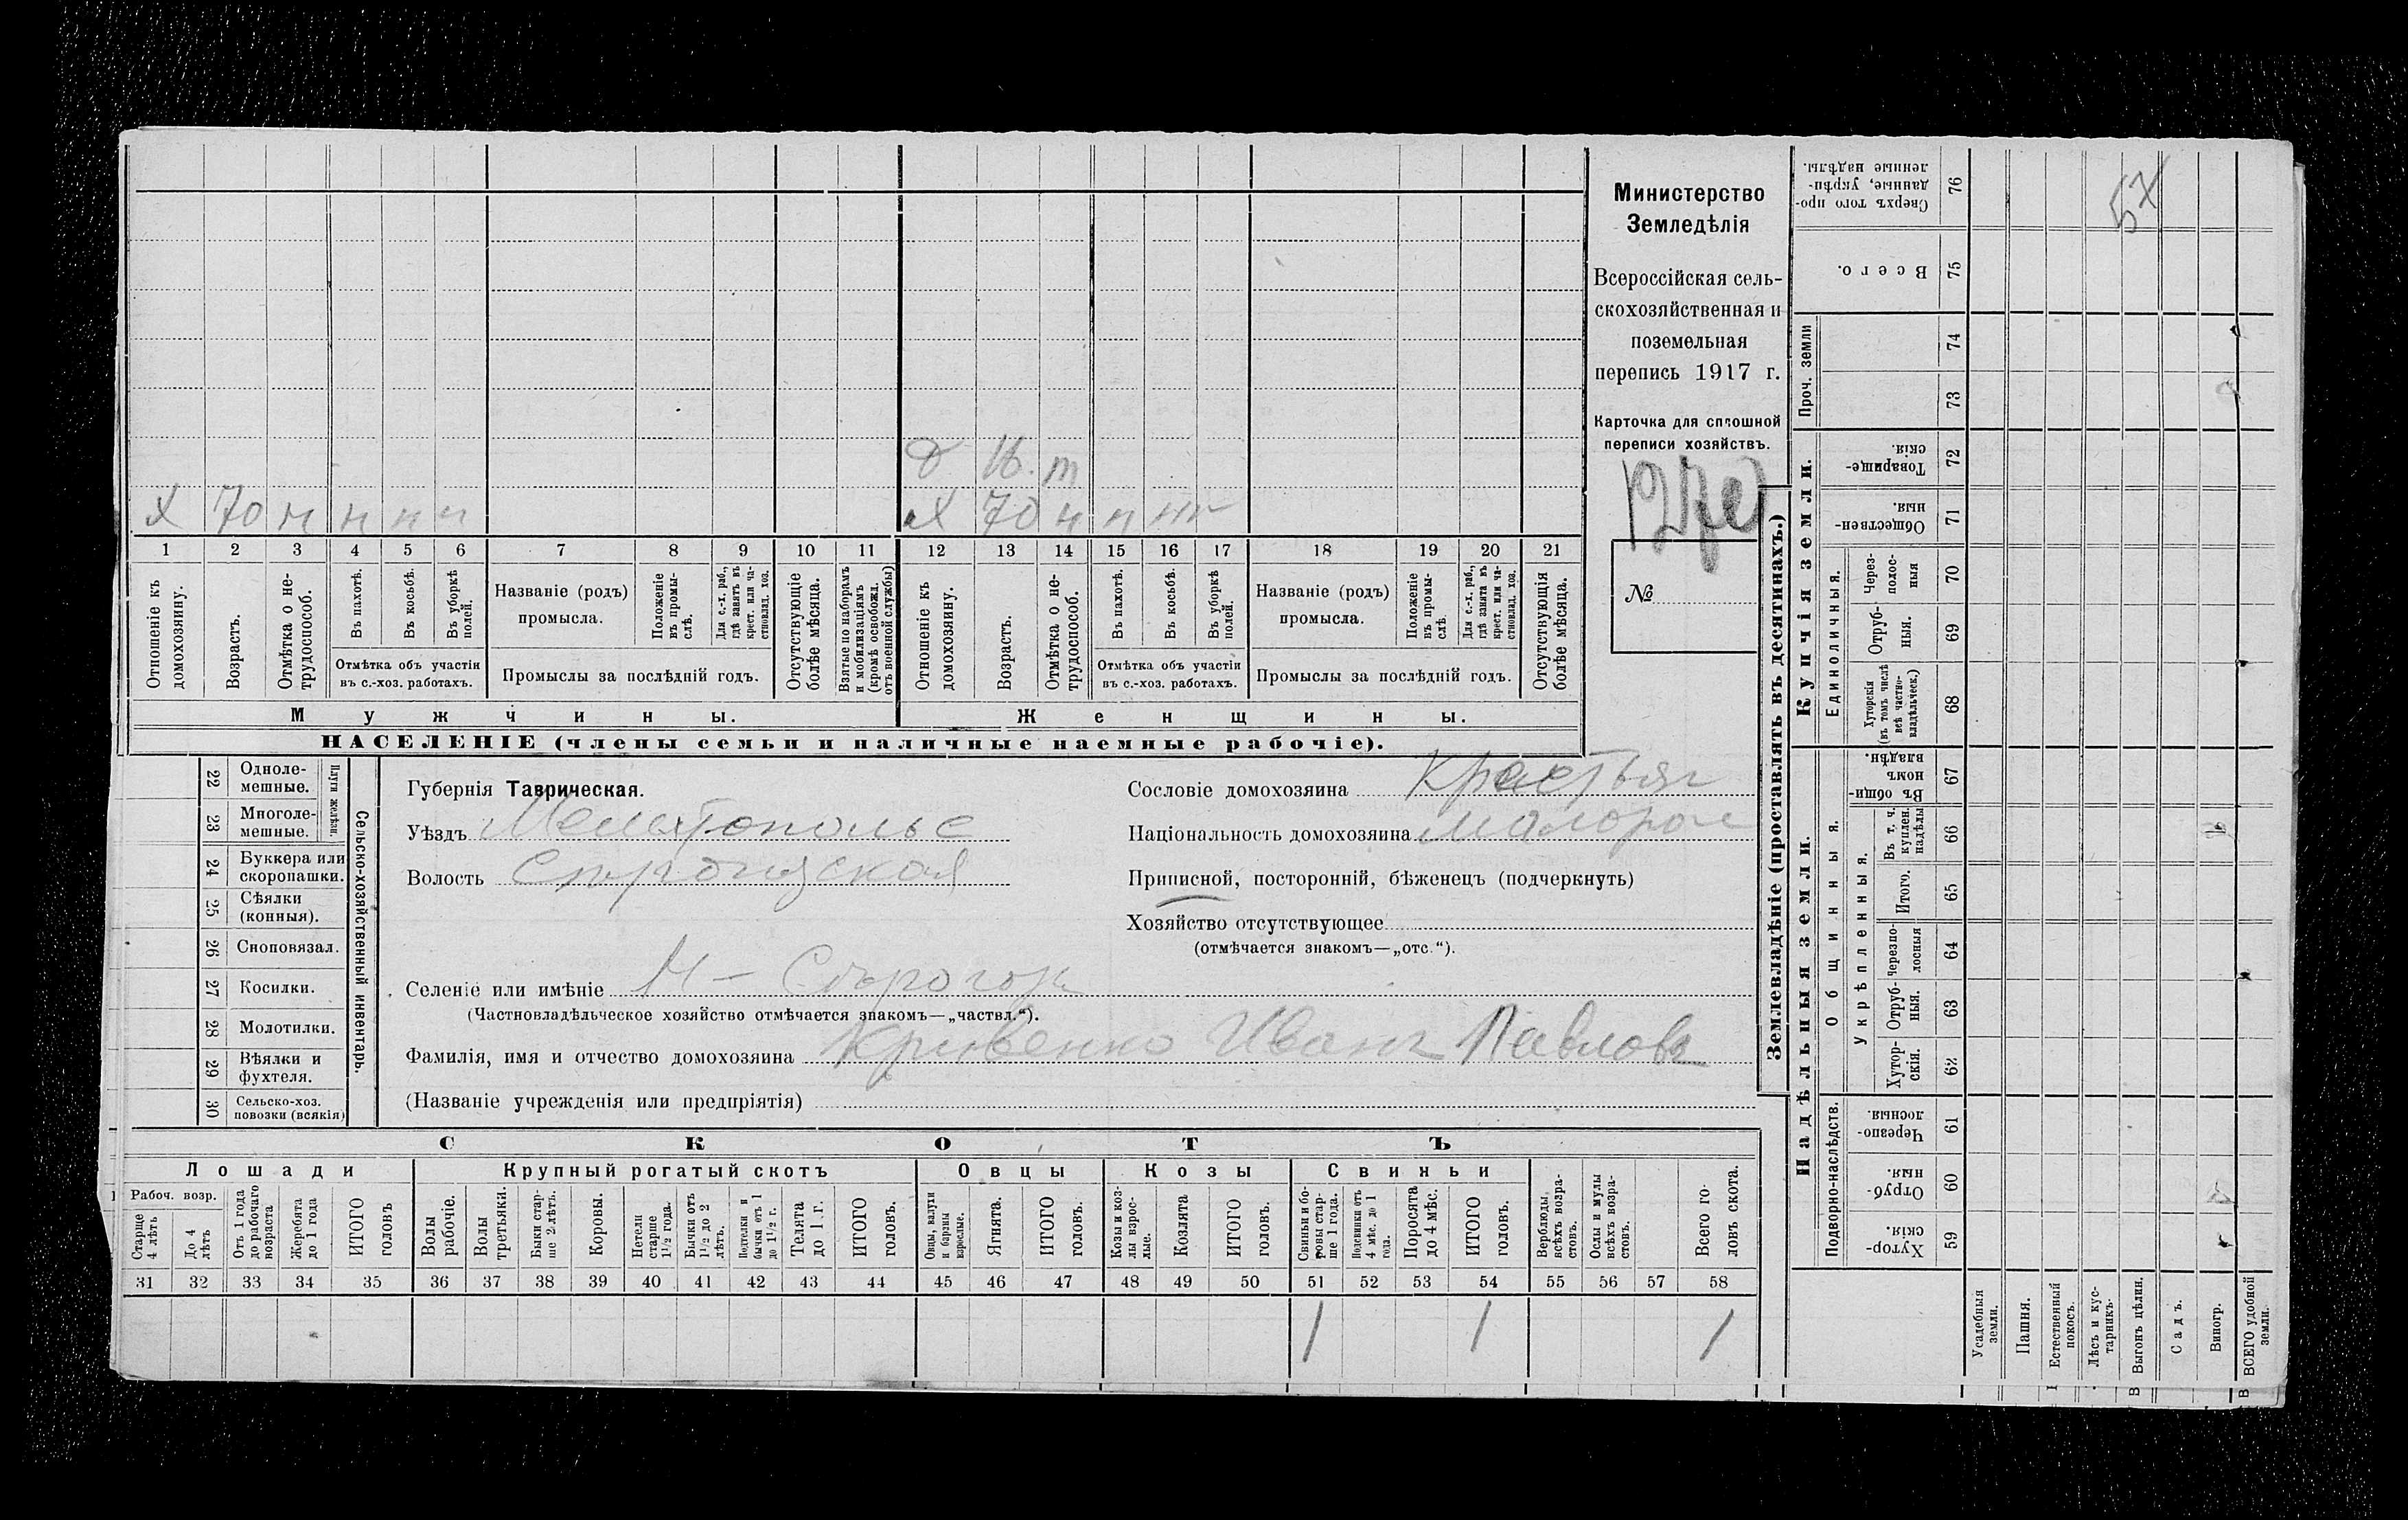 Министерство
Земледѣлія
Всероссійская сель-
скохозяйственная и
поземельная
перепись 1917 г.
Карточка для сплошной
переписи хозяйствъ.
№
д 16. т
х 70 н н н н
х 70 н н н н
1 2 3 4 5 6 7 8 9 10 11 12 13 14 15 16 17 18 19 20 21
Отношеніе къ домохозяину.
Возрастъ.
Отмѣтка о не-трудоспособ.
Въ пахотѣ.
Въ косьбѣ.
Въ уборкѣ полей.
Отмѣтка объ участіи
въ с.-хоз. работахъ.
Названіе (родъ)
промысла.
Положеніе въ промы-слѣ.
Для с.-х. раб., гдѣ занятъ въ крест. или ча-стновлад. хоз.
Промыслы за послѣдній годъ.
Отсутствующіе болѣе мѣсяца.
Взятые по наборамъ и мобилизаціямъ (кромѣ освобожд. отъ военной службы)
Отношеніе къ домохозяину.
Возрастъ.
Отмѣтка о не-трудоспособ.
Въ пахотѣ.
Въ косьбѣ.
Въ уборкѣ полей.
Отмѣтка объ участіи
въ с.-хоз. работахъ.
Названіе (родъ)
промысла.
Положеніе въ промы-слѣ.
Для с.-х. раб., гдѣ занята въ крест. или ча-стновлад. хоз.
Промыслы за послѣдній годъ.
Отсутствующія болѣе мѣсяца.
Мужчины. Женщины.
НАСЕЛЕНІЕ (члены семьи и наличные наемные рабочіе).
Сельско-хозяйственный инвентарь.
Плуги желѣзн.
22 Одноле-мешные.
23 Многоле-мешные.
24 Буккера или скоропашки.
25 Сѣялки (конныя).
26 Сноповязал.
27 Косилки.
28 Молотилки.
29 Вѣялки и фухтеля.
30 Сельско-хоз. повозки (всякія)
Губернія Таврическая.
Уѣздъ Мелитопольс
Волость
Сословіе домохозяина Крестьян
Національность домохозяина малорос
Приписной, посторонній, бѣженецъ (подчеркнуть)
Хозяйство отсутствующее
(отмѣчается знакомъ—„отс.“).
Селеніе или имѣніе Н-Сѣрогоз
(Частновладѣльческое хозяйство отмѣчается знакомъ—„частвл.“).
Фамилія, имя и отчество домохозяина Кривенко Иванъ Павловъ
(Названіе учрежденія или предпріятія)
СКОТЪ
Лошади Крупный рогатый скотъ Овцы Козы Свиньи
Рабоч. возр.
Старше 4 лѣтъ
До 4 лѣтъ
Отъ 1 года до рабочаго возраста
Жеребята до 1 года
ИТОГО головъ
Волы рабочіе.
Волы третьяки.
Быки стар-ше 2 лѣтъ.
Коровы.
Нетели старше 1½ года.
Бычки отъ 1½ до 2 лѣтъ.
Подтелки и бычки отъ 1 до 1½ г.
Телята до 1 г.
ИТОГО головъ.
Овцы, валухи и бараны взрослые.
Ягнята.
ИТОГО головъ.
Козы и коз-лы взрос-лые.
Козлята
ИТОГО головъ.
Свиньи и бо-ровы стар-ше 1 года.
Подсвинки отъ 4 мѣс. до 1 года.
Поросята до 4 мѣс.
ИТОГО головъ.
Верблюды всѣхъ возра-стовъ.
Ослы и мулы всѣхъ возра-стовъ.
Всего го-ловъ скота.
31 32 33 34 35 36 37 38 39 40 41 42 43 44 45 46 47 48 49 50 51 52 53 54 55 56 57 58
1 1 1
Землевладѣніе (проставлять въ десятинахъ.)
Купчія земли.
Надѣльныя земли.
57
Сверхъ того про-данные, укрѣп-ленные надѣлы. 76
Всего. 75
Проч. земли
74
73
Товарище-скія. 72
Обществен-ныя. 71
Единоличныя.
Через-полос-ныя 70
Отруб-ныя. 69
Хуторскія (въ томъ числѣ всѣ частно-владѣльческ.) 68
Общинныя.
Въ общин-номъ владѣн. 67
Укрѣпленныя.
Въ т. ч. куплен. надѣлы 66
Итого. 65
Черезпо-лосныя 64
Отруб-ныя. 63
Хутор-скія. 62
Подворно-наслѣдств.
Черезпо-лосныя. 61
Отруб-ныя. 60
Хутор-скія 59
Усадебныя земли.
Пашня.
Естественный покосъ.
Лѣсъ и кус-тарникъ.
Выгонъ цѣлин.
Садъ.
Виногр.
ВСЕГО удобной земли.